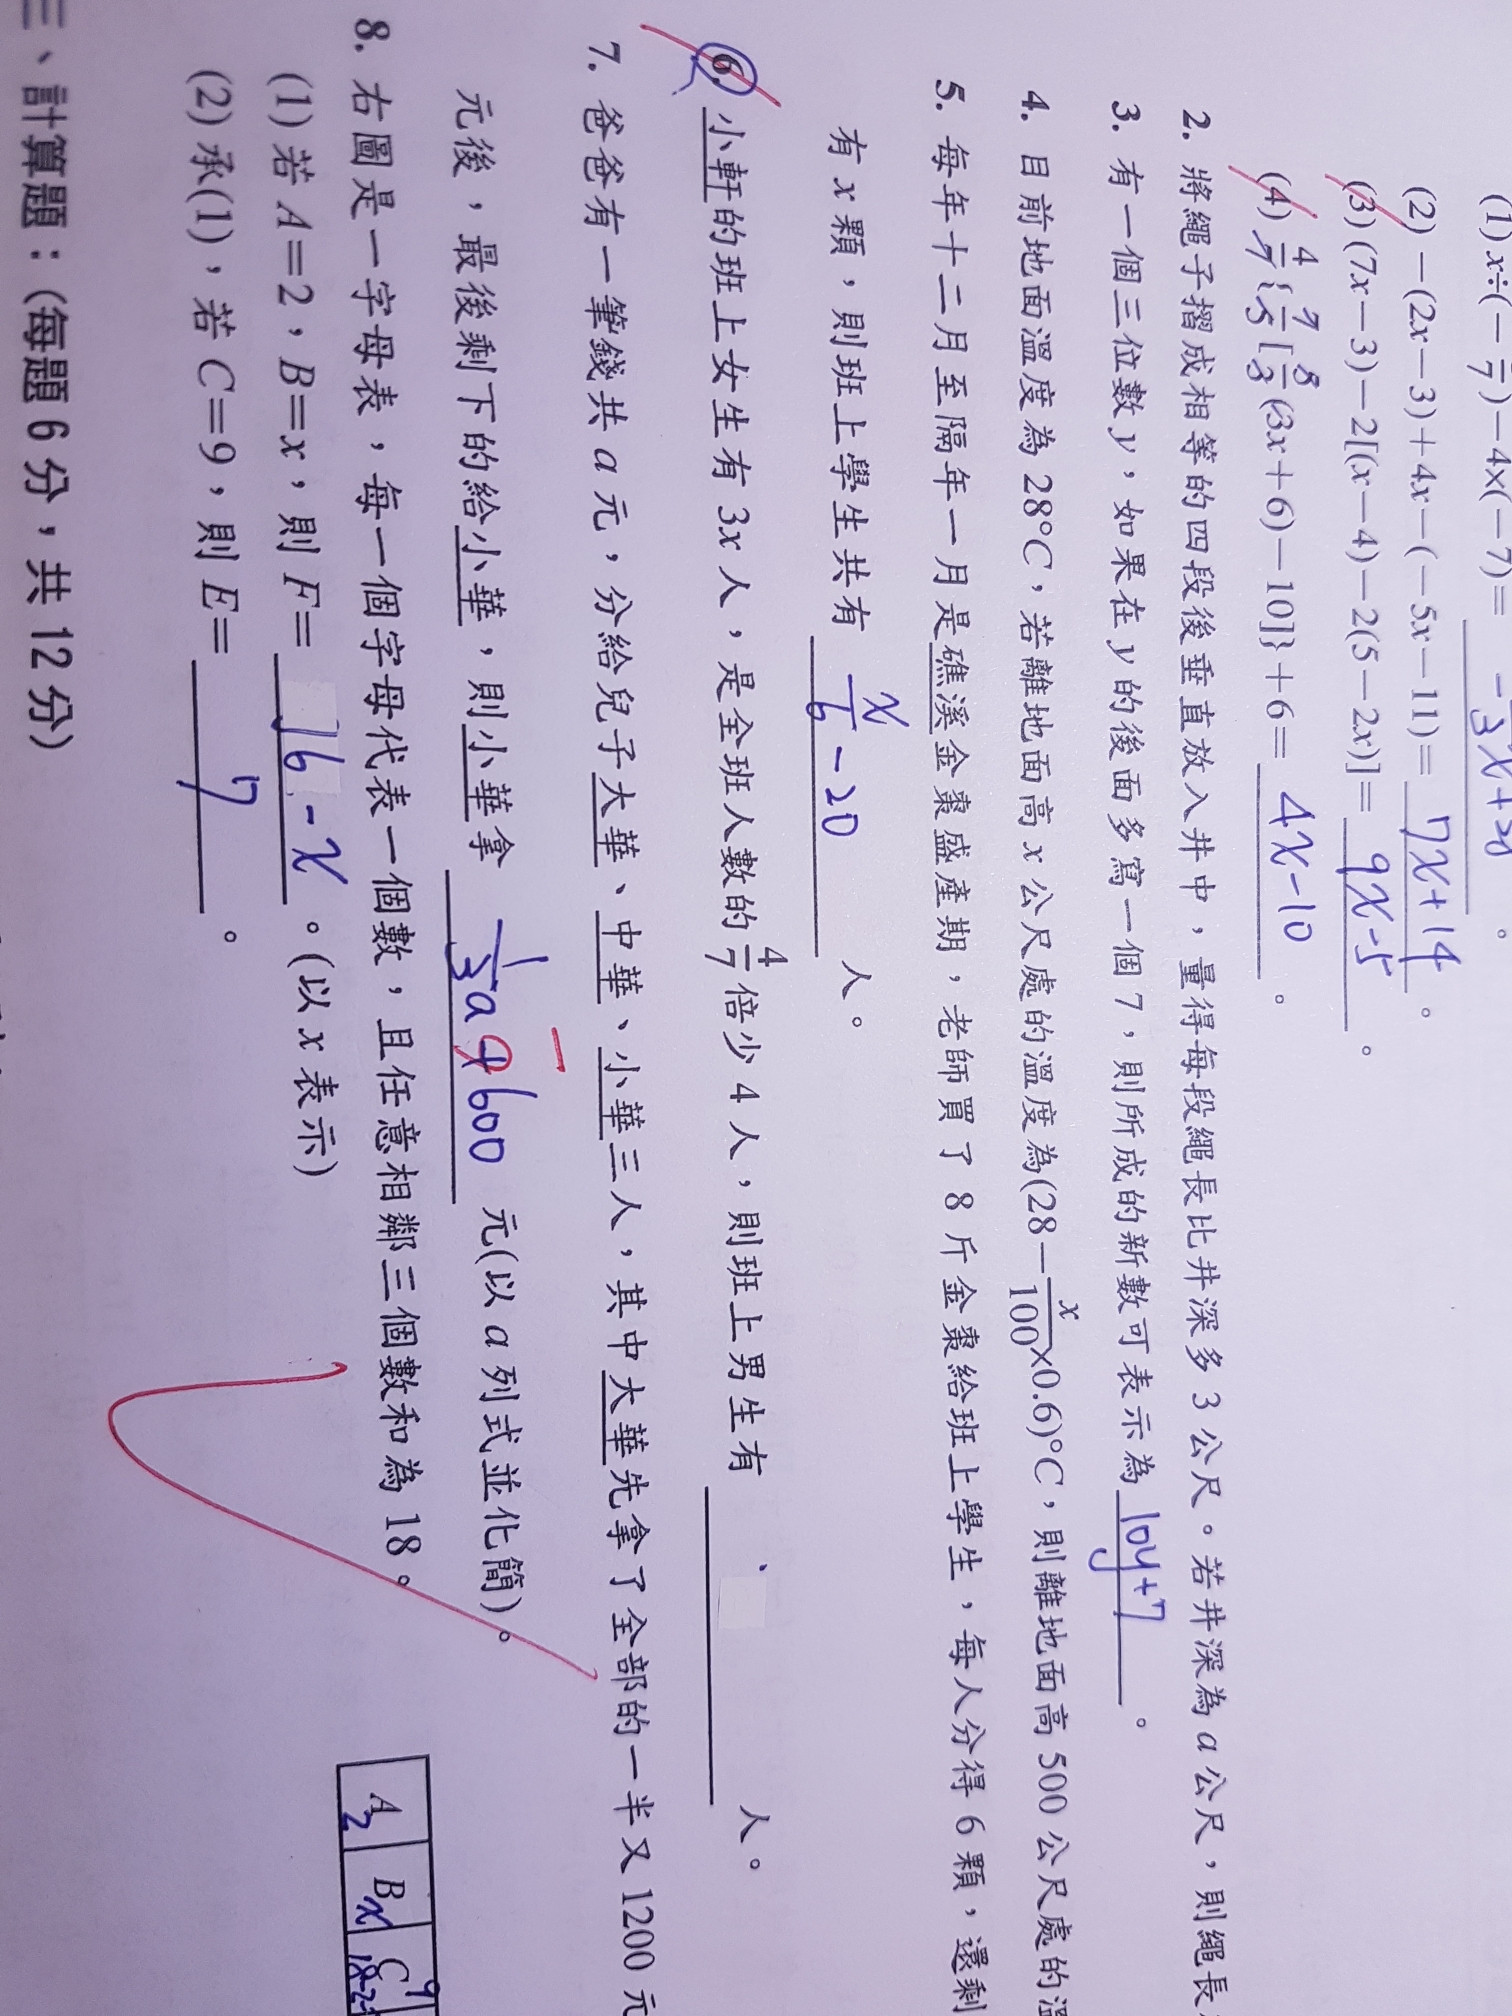 (1) x÷(−1/7)−4×(−7)= −3x+28 。
(2) −(2x−3)+4x−(−5x−11)= 7x+14 。
(3) (7x−3)−2[(x−4)−2(5−2x)]= 9x-5 。
(4) 4/7{7/5[8/3(3x+6)−10]}+6= 4x-10 。
2. 將繩子摺成相等的四段後垂直放入井中，量得每段繩長比井深多 3 公尺。若井深為 a 公尺，則繩長
3. 有一個三位數 y，如果在 y 的後面多寫一個 7，則所成的新數可表示為 10y+7 。
4. 目前地面溫度為 28°C，若離地面高 x 公尺處的溫度為(28−x/100×0.6)°C，則離地面高 500 公尺處的溫
5. 每年十二月至隔年一月是礁溪金棗盛產期，老師買了 8 斤金棗給班上學生，每人分得 6 顆，還剩
有 x 顆，則班上學生共有 x/6-20 人。
6. 小軒的班上女生有 3x 人，是全班人數的4/7倍少 4 人，則班上男生有 人。
7. 爸爸有一筆錢共 a 元，分給兒子大華、中華、小華三人，其中大華先拿了全部的一半又 1200 元
元後，最後剩下的給小華，則小華拿 1/3a 600 元(以 a 列式並化簡)。
8. 右圖是一字母表，每一個字母代表一個數，且任意相鄰三個數和為 18。
A B C
2 x 9
(1) 若 A=2，B=x，則 F= 16-x 。(以 x 表示)
(2) 承(1)，若 C=9，則 E= 7 。
三、計算題：(每題 6 分，共 12 分)